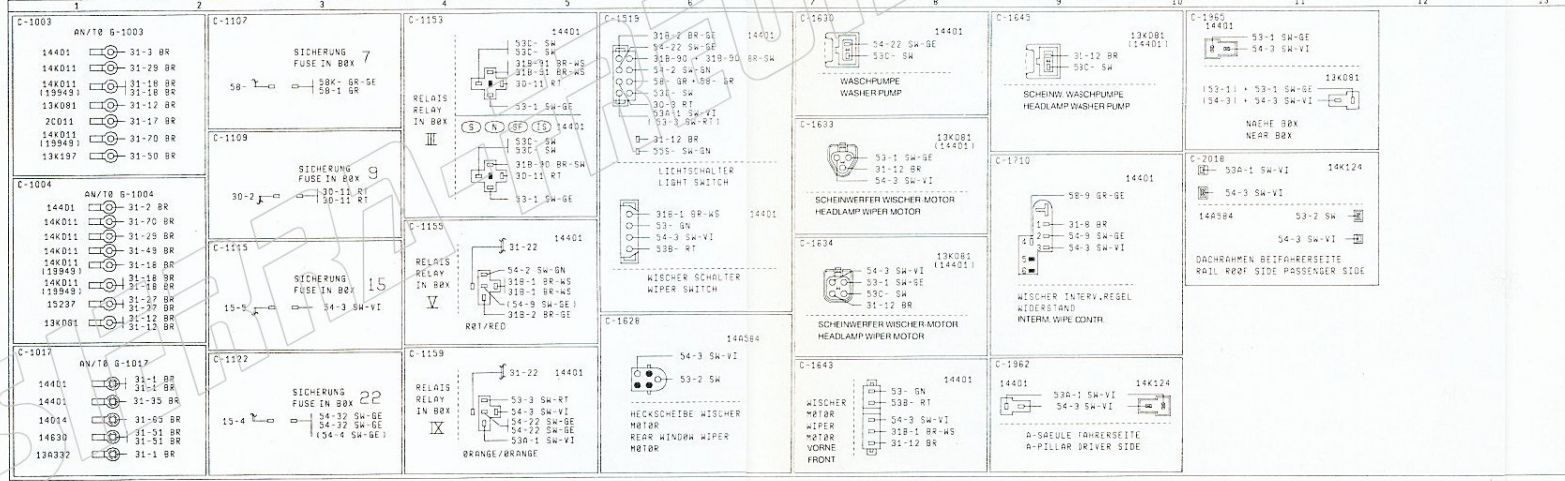 1 2 3 4 5 6 7 8 9 10 11 12 13
C-1003
AN/TO G-1003
14401 31-3 BR
14K011 31-29 BR
14K011 31-18 BR
(19949) 31-18 BR
13K081 31-12 BR
2C011 31-17 BR
14K011 31-70 BR
(19949)
13K197 31-50 BR
C-1004
AN/TO G-1004
14401 31-2 BR
14K011 31-70 BR
14K011 31-29 BR
14K011 31-49 BR
14K011 31-18 BR
(19949)
14K011 31-18 BR
(19949) 31-18 BR
15237 31-27 BR
31-27 BR
13K081 31-12 BR
31-12 BR
C-1017
AN/TO G-1017
14401 31-1 BR
31-1 BR
14401 31-35 BR
14014 31-65 BR
14630 31-51 BR
31-51 BR
13A332 31-1 BR
C-1107
SICHERUNG
FUSE IN BOX 7
58- 58K- GR-GE
58-1 GR
C-1109
SICHERUNG
FUSE IN BOX 9
30-2 30-11 RT
30-11 RT
C-1115
SICHERUNG
FUSE IN BOX 15
15-5 54-3 SW-VI
C-1122
SICHERUNG
FUSE IN BOX 22
15-4 54-32 SW-GE
54-32 SW-GE
(54-4 SW-GE)
C-1153
14401
53C- SW
53C- SW
31B-91 BR-WS
31B-91 BR-WS
30-11 RT
53-1 SW-GE
RELAIS
RELAY
IN BOX
III
S N GF IS 14401
53C- SW
53C- SW
31B-90 BR-SW
30-11 RT
53-1 SW-GE
C-1155
31-22 14401
RELAIS
RELAY
IN BOX
V
54-2 SW-GN
31B-1 BR-WS
31B-1 BR-WS
(54-9 SW-GE)
31B-2 BR-GE
ROT/RED
C-1159
31-22 14401
RELAIS
RELAY
IN BOX
IX
53-3 SW-RT
54-3 SW-VI
54-22 SW-GE
54-22 SW-GE
53A-1 SW-VI
ORANGE/ORANGE
C-1519
31B-2 BR-GE 14401
54-22 SW-GE
31B-90 + 31B-90 BR-SW
54-2 SW-GN
58- GR + 58- GR
53C- SW
30-3 RT
53A-1 SW-VI
(53-3 SW-RT)
31-12 BR
55S- SW-GN
LICHTSCHALTER
LIGHT SWITCH
31B-1 BR-WS 14401
53- GN
54-3 SW-VI
53B- RT
WISCHER SCHALTER
WIPER SWITCH
C-1628
14A584
54-3 SW-VI
53-2 SW
HECKSCHEIBE WISCHER
MOTOR
REAR WINDOW WIPER
MOTOR
C-1630
14401
54-22 SW-GE
53C- SW
WASCHPUMPE
WASHER PUMP
C-1633
13K081
(14401)
53-1 SW-GE
31-12 BR
54-3 SW-VI
SCHEINWERFER WISCHER-MOTOR
HEADLAMP WIPER MOTOR
C-1634
13K081
(14401)
54-3 SW-VI
53-1 SW-GE
53C- SW
31-12 BR
SCHEINWERFER WISCHER-MOTOR
HEADLAMP WIPER MOTOR
C-1643
14401
53- GN
53B- RT
54-3 SW-VI
31B-1 BR-WS
31-12 BR
WISCHER
MOTOR
WIPER
MOTOR
VORNE
FRONT
C-1645
13K081
(14401)
31-12 BR
53C- SW
SCHEINW. WASCHPUMPE
HEADLAMP WASHER PUMP
C-1710
14401
58-9 GR-GE
1 31-8 BR
2 54-9 SW-GE
4 3 54-3 SW-VI
5
6
WISCHER INTERV.REGEL
WIDERSTAND
INTERM. WIPE CONTR.
C-1962
14401 14K124
53A-1 SW-VI
54-3 SW-VI
A-SAEULE FAHRERSEITE
A-PILLAR DRIVER SIDE
C-1965
14401
53-1 SW-GE
54-3 SW-VI
13K081
(53-1) + 53-1 SW-GE
(54-3) + 54-3 SW-VI
NAEHE BOX
NEAR BOX
C-2018
53A-1 SW-VI 14K124
54-3 SW-VI
14A584 53-2 SW
54-3 SW-VI
DACHRAHMEN BEIFAHRERSEITE
RAIL ROOF SIDE PASSENGER SIDE